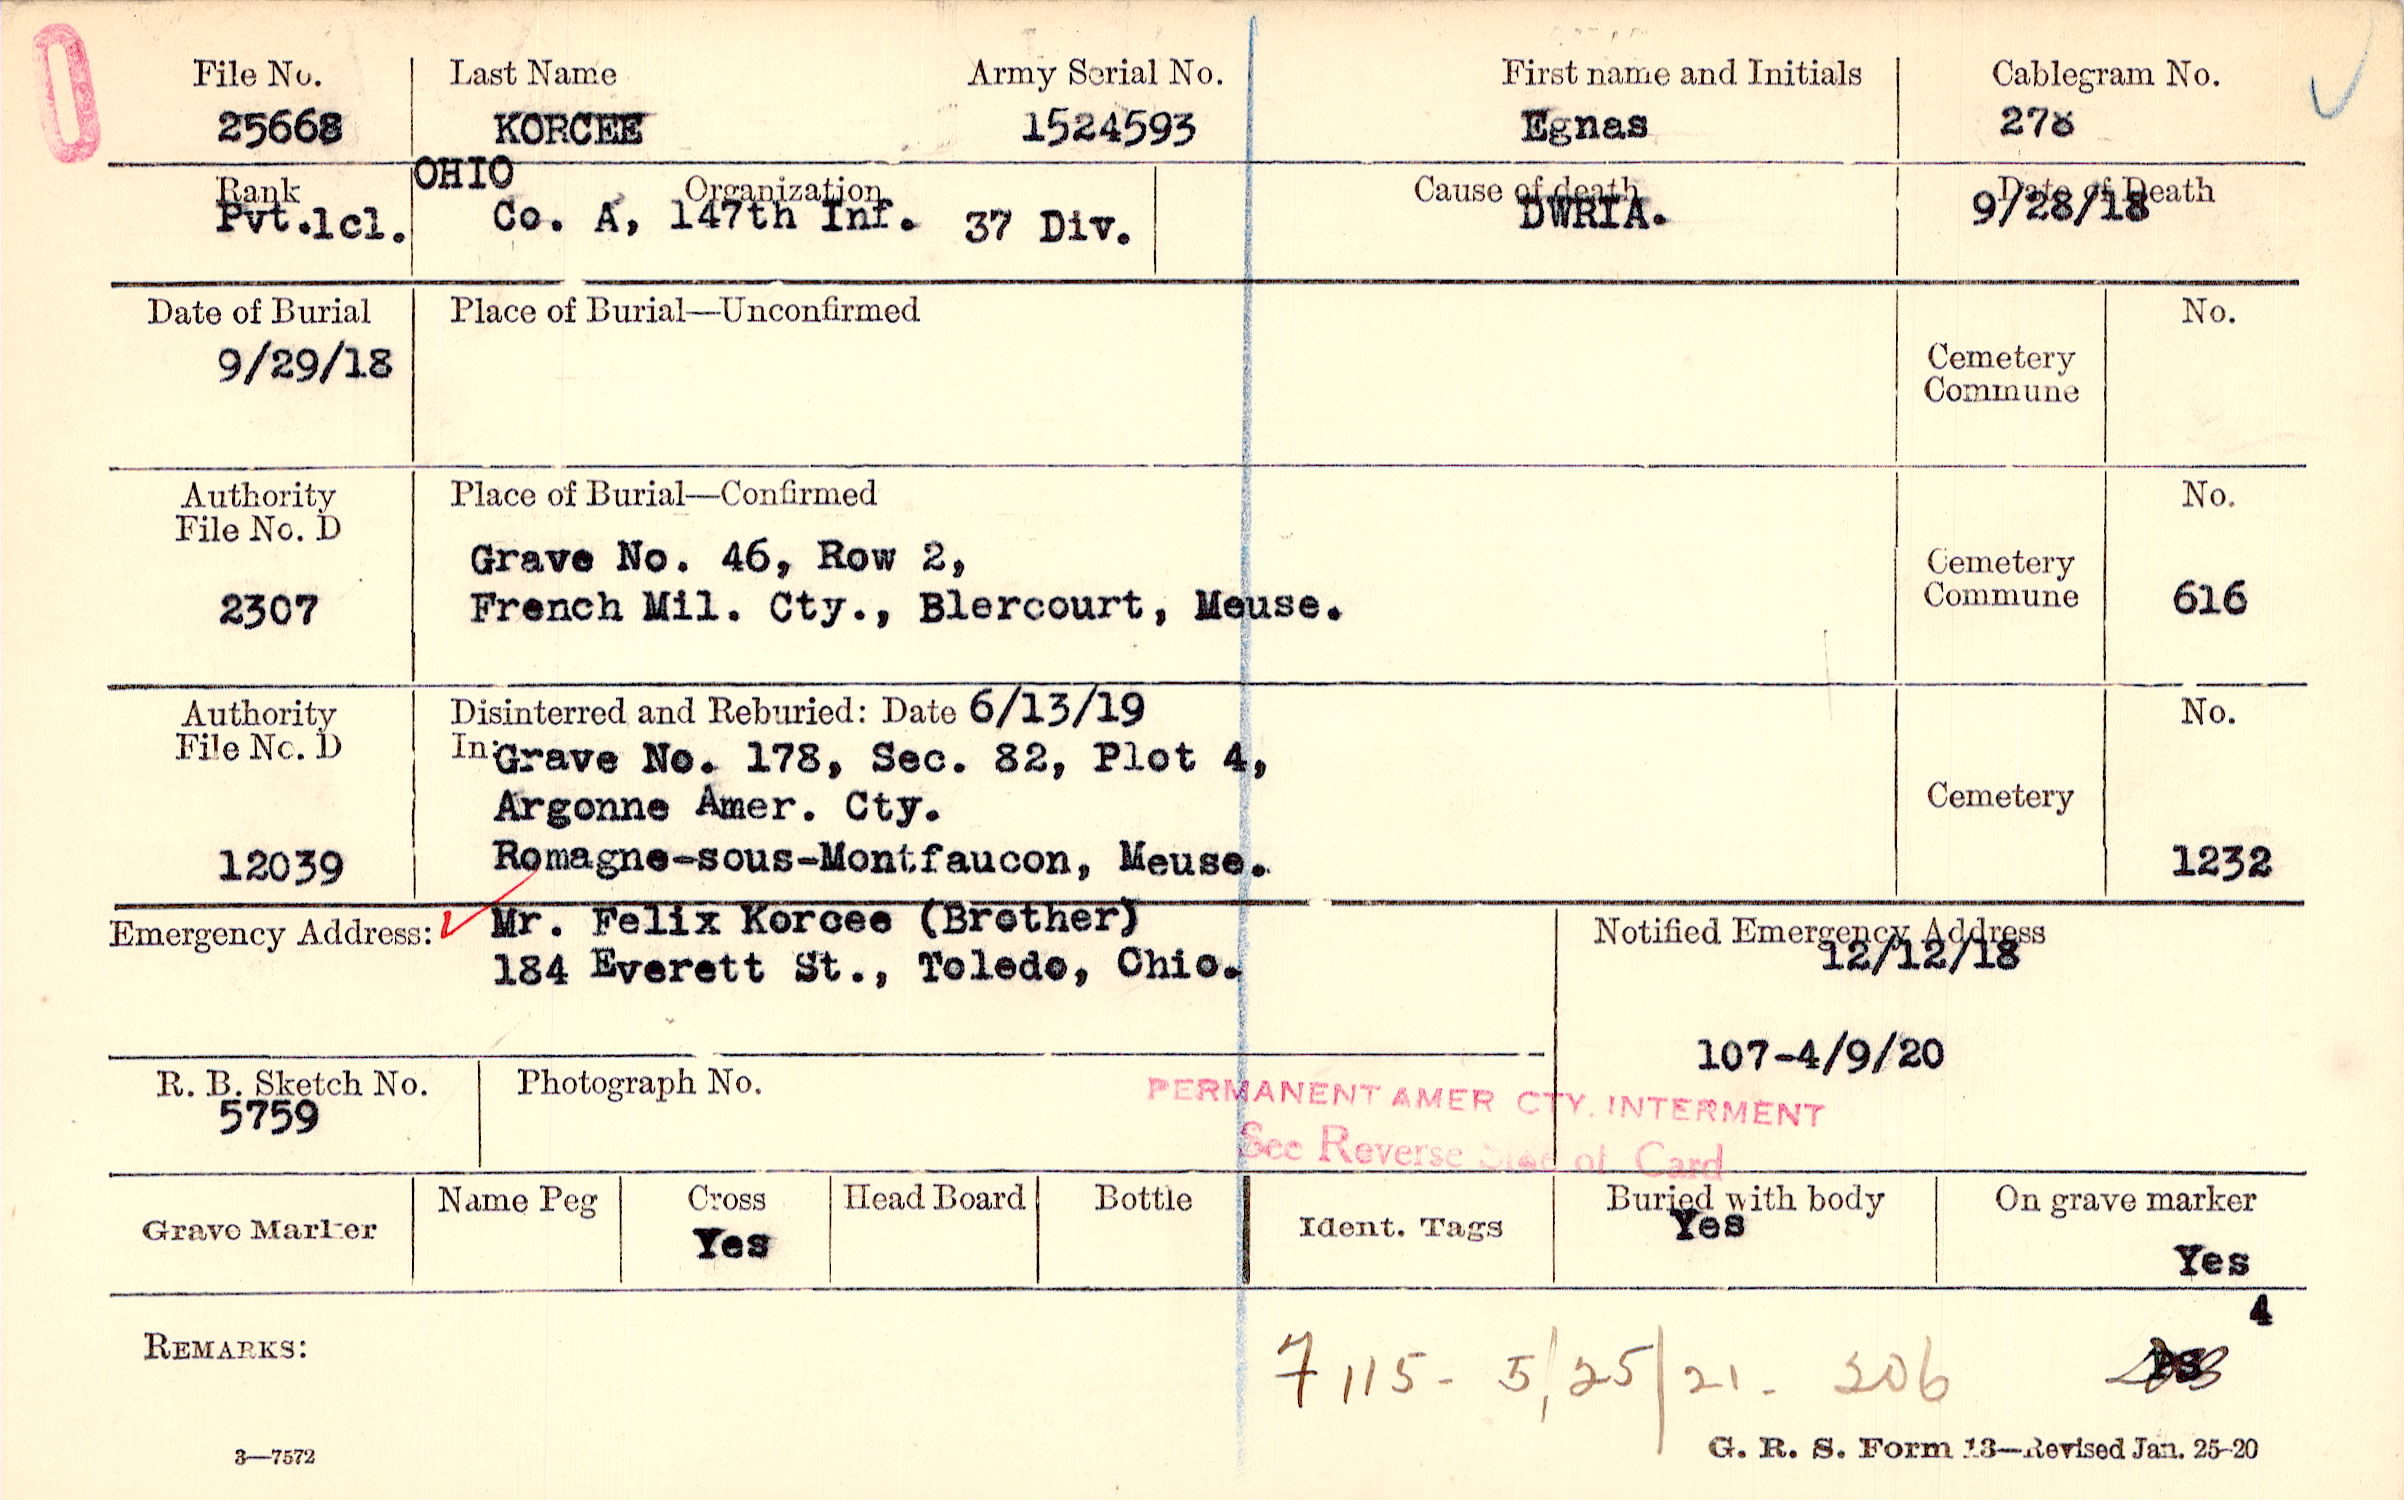 File No. Last Name Army Serial No. First name and Initials Cablegram No.
25668 KORCEE 1524593 Egnas 278
OHIO
Rank Organization Cause of death Date of Death
Pvt.1cl. Co. A, 147th Inf. 37 Div. DWRIA. 9/28/18
Date of Burial Place of Burial—Unconfirmed No.
9/29/18
Cemetery
Commune
Authority Place of Burial—Confirmed No.
File No. D
Grave No. 46, Row 2, Cemetery
2307 French Mil. Cty., Blercourt, Meuse. Commune 616
Authority Disinterred and Reburied: Date 6/13/19 No.
File No. D In: Grave No. 178, Sec. 82, Plot 4,
Argonne Amer. Cty. Cemetery
12039 Romagne-sous-Montfaucon, Meuse. 1232
Emergency Address: Mr. Felix Korcee (Brother) Notified Emergency Address
184 Everett St., Toledo, Ohio. 12/12/18
107-4/9/20
R. B. Sketch No. Photograph No.
5759
PERMANENT AMER CTY. INTERMENT
See Reverse Side of Card
Grave Marker Name Peg Cross Head Board Bottle Ident. Tags Buried with body On grave marker
Yes Yes Yes
4
REMARKS: 7 115- 5/25/21- 206
3—7572 G. R. S. Form 13—Revised Jan. 25-20